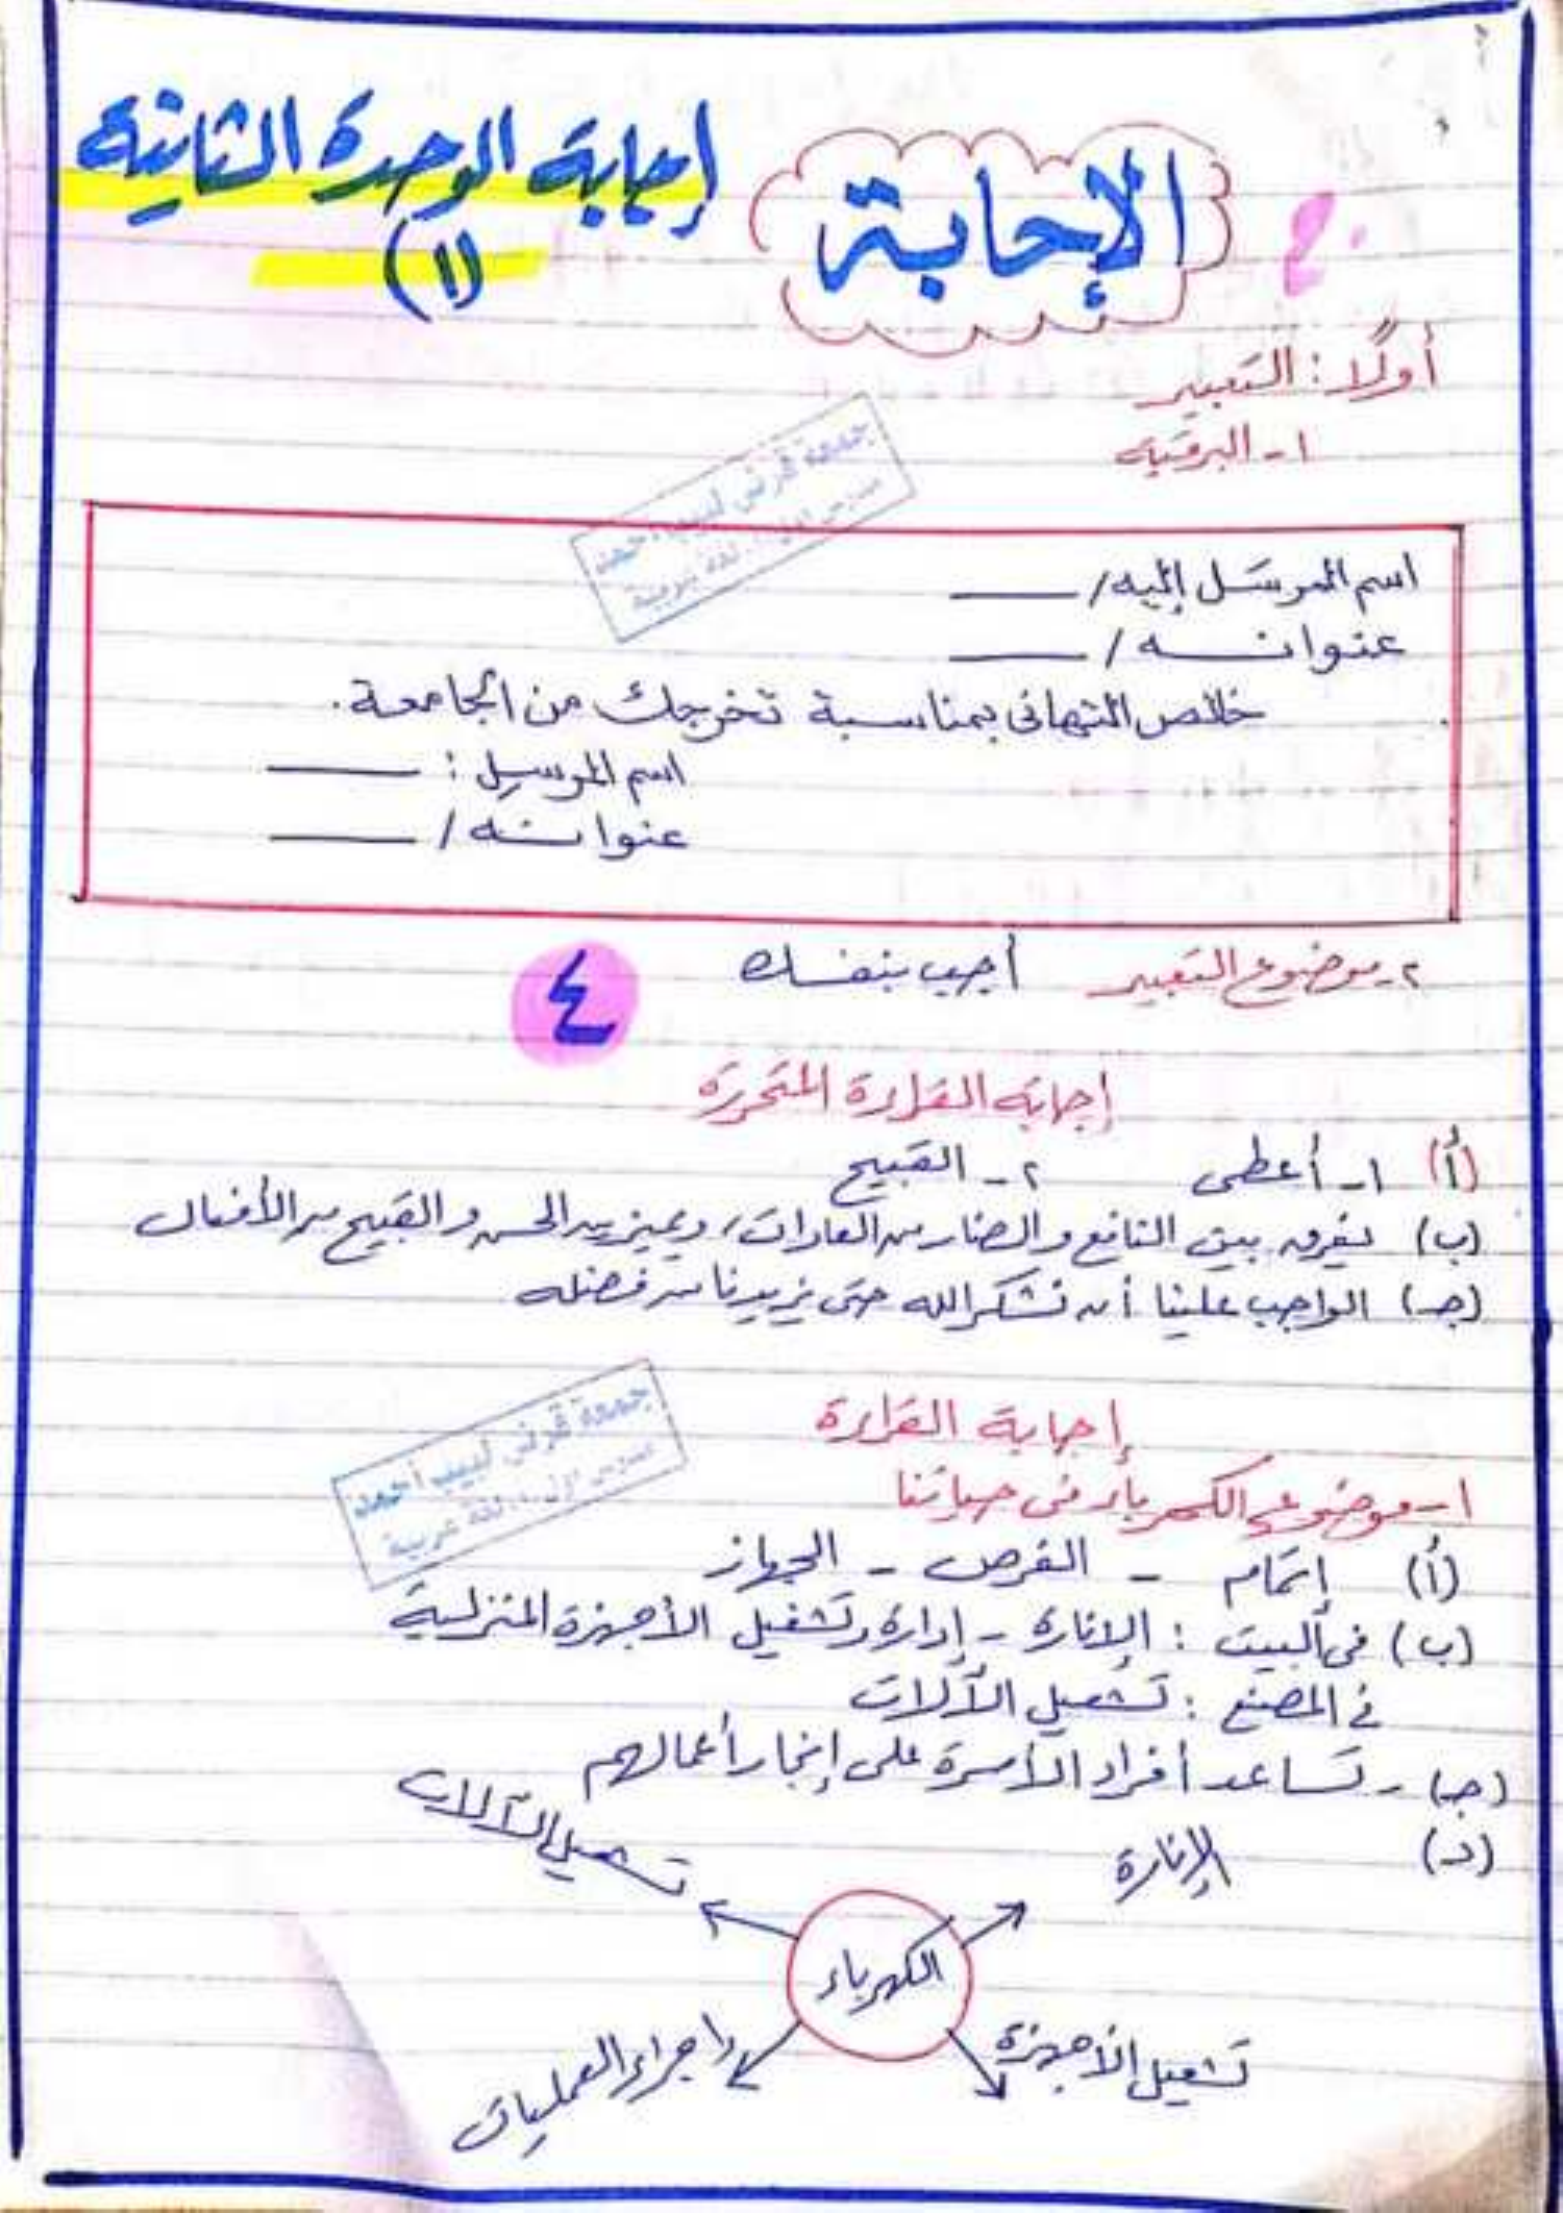 الإجابة
إجابة الوحدة الثانية
(١)
أولًا: التعبير
١- البرقية
جمعة قرنى لبيب أحمد
لغة عربية
اسم المرسَل إليه/
عنوانه/
خالص التهانى بمناسبة تخرجك من الجامعة.
اسم المرسِل:
عنوانه/
٢- موضوع التعبير أجب بنفسك
٤
إجابة القراءة المتحررة
(أ) ١- أعطى ٢- القبيح
(ب) يفرق بين النافع والضار من العادات، ويميز بين الحسن والقبيح من الأفعال
(جـ) الواجب علينا أن نشكر الله حتى يزيدنا من فضله
إجابة القراءة
جمعة قرنى لبيب أحمد
لغة عربية
١- موضوع الكهرباء فى حياتنا
(أ) إتمام - الغرض - الجهاز
(ب) فى البيت : الإنارة - إدارة وتشغيل الأجهزة المنزلية
فى المصنع : تشغيل الآلات
(جـ) - تساعد أفراد الأسرة على إنجاز أعمالهم
(د)
الإنارة
تشغيل الآلات
الكهرباء
تشغيل الأجهزة
إجراء العمليات